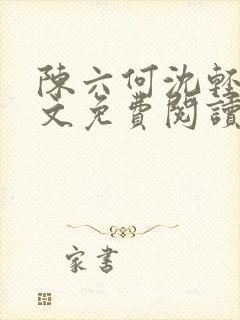 陳六何沈輕
文免費閱讀
家書